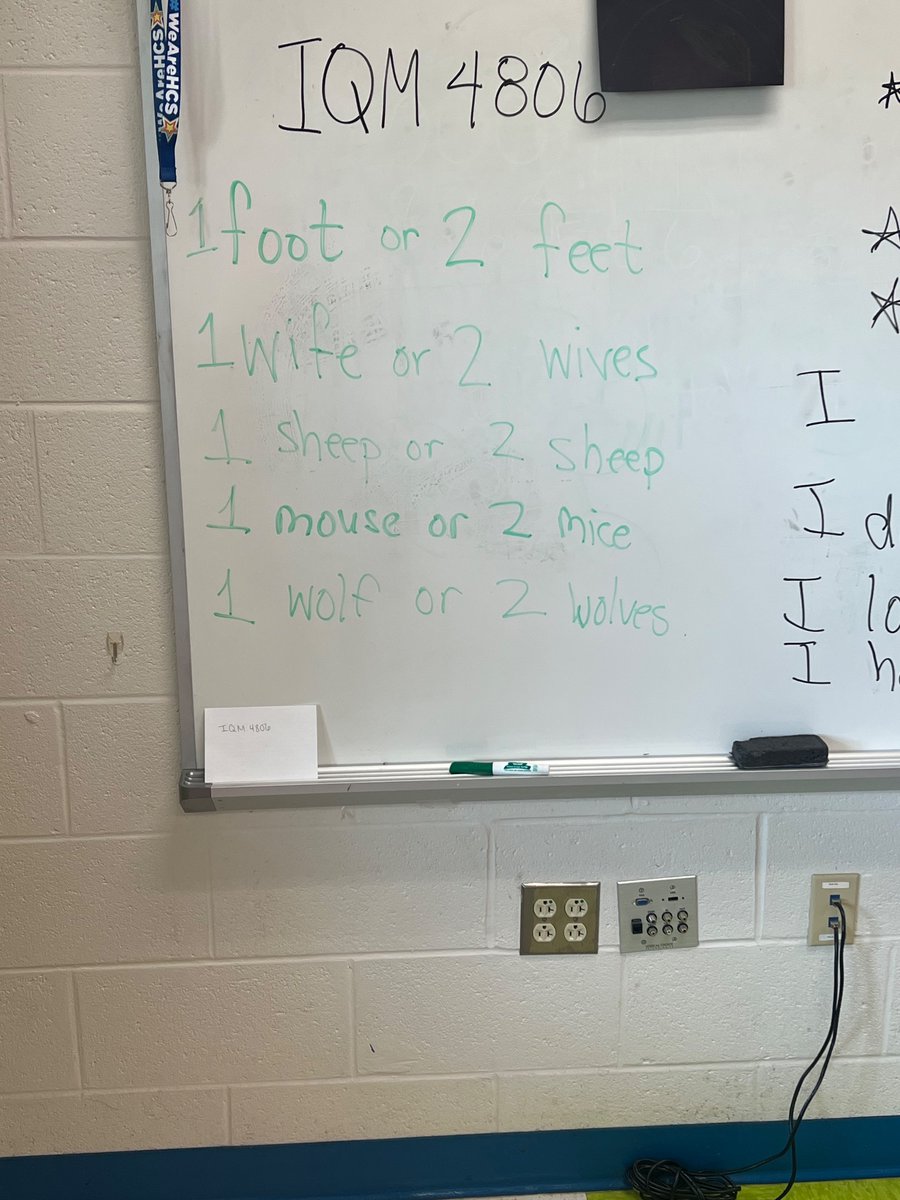 #WeAreHCS
IQM 4806
1 foot or 2 feet
1 wife or 2 wives
1 sheep or 2 sheep
1 mouse or 2 mice
1 wolf or 2 wolves
I
I d
I lo
I h
IQM 4806